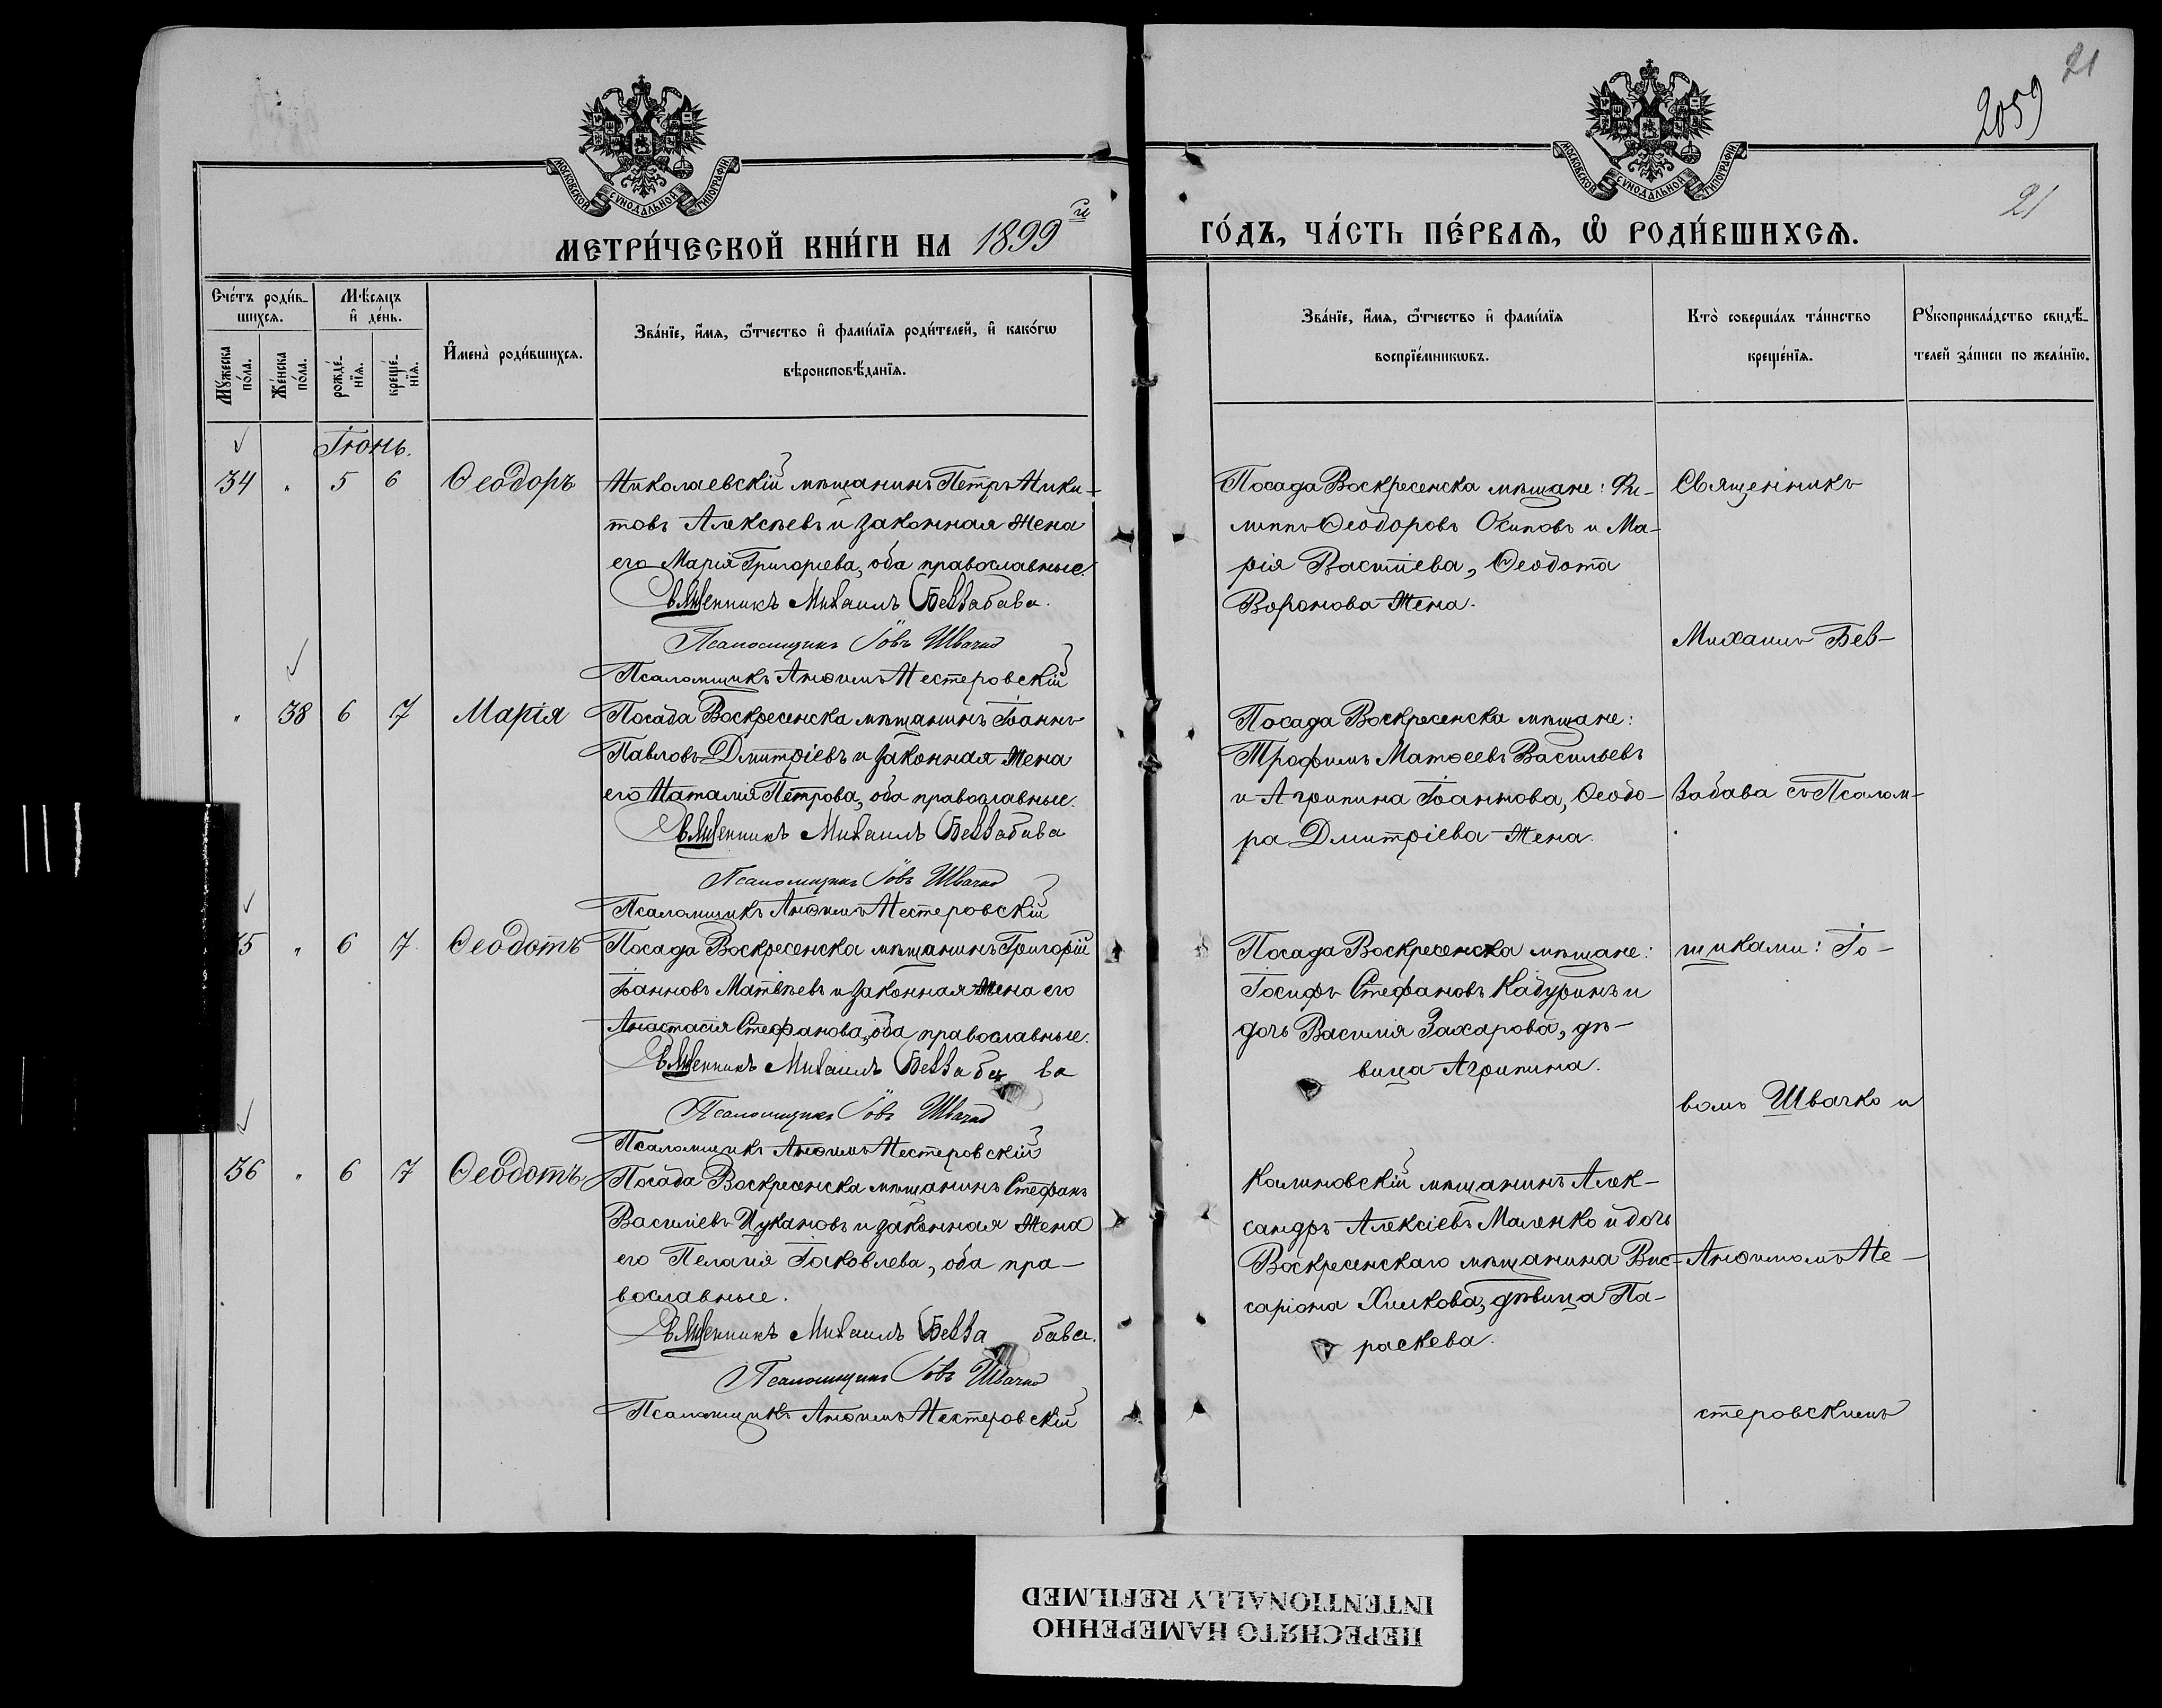 21
2059
21
МОСКОВСКОЙ СѴНОДАЛЬНОЙ ТИПОГРАФІИ
МОСКОВСКОЙ СѴНОДАЛЬНОЙ ТИПОГРАФІИ
МЕТРИ́ЧЕСКОЙ КНИ́ГИ НА 1899 й
ГО́ДЪ, ЧА́СТЬ ПЕ́РВАѦ, Ѽ РОДИ́ВШИХСѦ.
Сче́тъ роди́в-
шихсѧ.
Мꙋ́жеска
по́ла.
Же́нска
по́ла.
Мѣ́сѧцъ
и҆ де́нь.
рожде́-
нїѧ.
креще́-
нїѧ.
И҆мена̀ роди́вшихсѧ.
Зва́нїе, и҆́мѧ, ѻ҆́тчество и҆ фами́лїѧ роди́телей, и҆ како́гѡ
вѣроисповѣ́данїѧ.
Зва́нїе, и҆́мѧ, ѻ҆́тчество и҆ фами́лїѧ
воспрїе́мникѡвъ.
Кто̀ соверша́лъ та́инство
креще́нїѧ.
Рꙋкоприкла́дство свидѣ́-
телей за́писи по жела́нїю.
Іюнь.
34 " 5 6 Ѳеодоръ
Николаевскій мѣщанинъ Петръ Ники-
товъ Алексѣевъ и законная жена
его Марія Григоріева, оба православные.
Священникъ Михаилъ Беззабава.
Псаломщикъ Іовъ Швачко
Псаломщикъ Анѳимъ Нестеровскій
Посада Воскресенска мѣщане: Фи-
липпъ Ѳеодоровъ Осиповъ и Ма-
рія Вастіева, Ѳеодота
Воронова жена.
" 38 6 7 Марія
Посада Воскресенска мѣщанинъ Іоаннъ
Павловъ Дмитріевъ и законная жена
его Наталія Петрова, оба православные.
Священникъ Михаилъ Беззабава
Псаломщикъ Іовъ Швачко
Псаломщикъ Анѳимъ Нестеровскій
Посада Воскресенска мѣщане:
Трофимъ Матѳеевъ Васильевъ
и Агрипина Іоаннова, Ѳеодо-
ра Дмитріева жена.
5 " 6 7 Ѳеодотъ
Посада Воскресенска мѣщанинъ Григорій
Іоанновъ Матвѣевъ и законная жена его
Анастасія Стефанова, оба православные.
Священникъ Михаилъ Беззаба ва
Псаломщикъ Іовъ Швачко
Псаломщикъ Анѳимъ Нестеровскій
Посада Воскресенска мѣщане:
Іосифъ Стефановъ Кадуринъ и
дочь Василія Захарова, дѣ-
вица Агрипина.
36 " 6 7 Ѳеодотъ
Посада Воскресенска мѣщанинъ Стефанъ
Василіевъ Цукановъ и законная жена
его Пелагія Іаковлева, оба пра-
вославные.
Священникъ Михаилъ Безза бава.
Псаломщикъ Іовъ Швачко
Псаломщикъ Анѳимъ Нестеровскій
Калиновскій мѣщанинъ Алек-
сандръ Алексіевъ Маленко и дочь
Воскресенскаго мѣщанина Вис-
саріона Хилкова, дѣвица Па-
раскева.
Священникъ
Михаилъ Без-
забава съ Псалом-
щиками: Іо-
вомъ Швачко и
Анѳимомъ Не-
стеровскимъ
ПЕРЕСНЯТО НАМЕРЕННО
INTENTIONALLY REFILMED